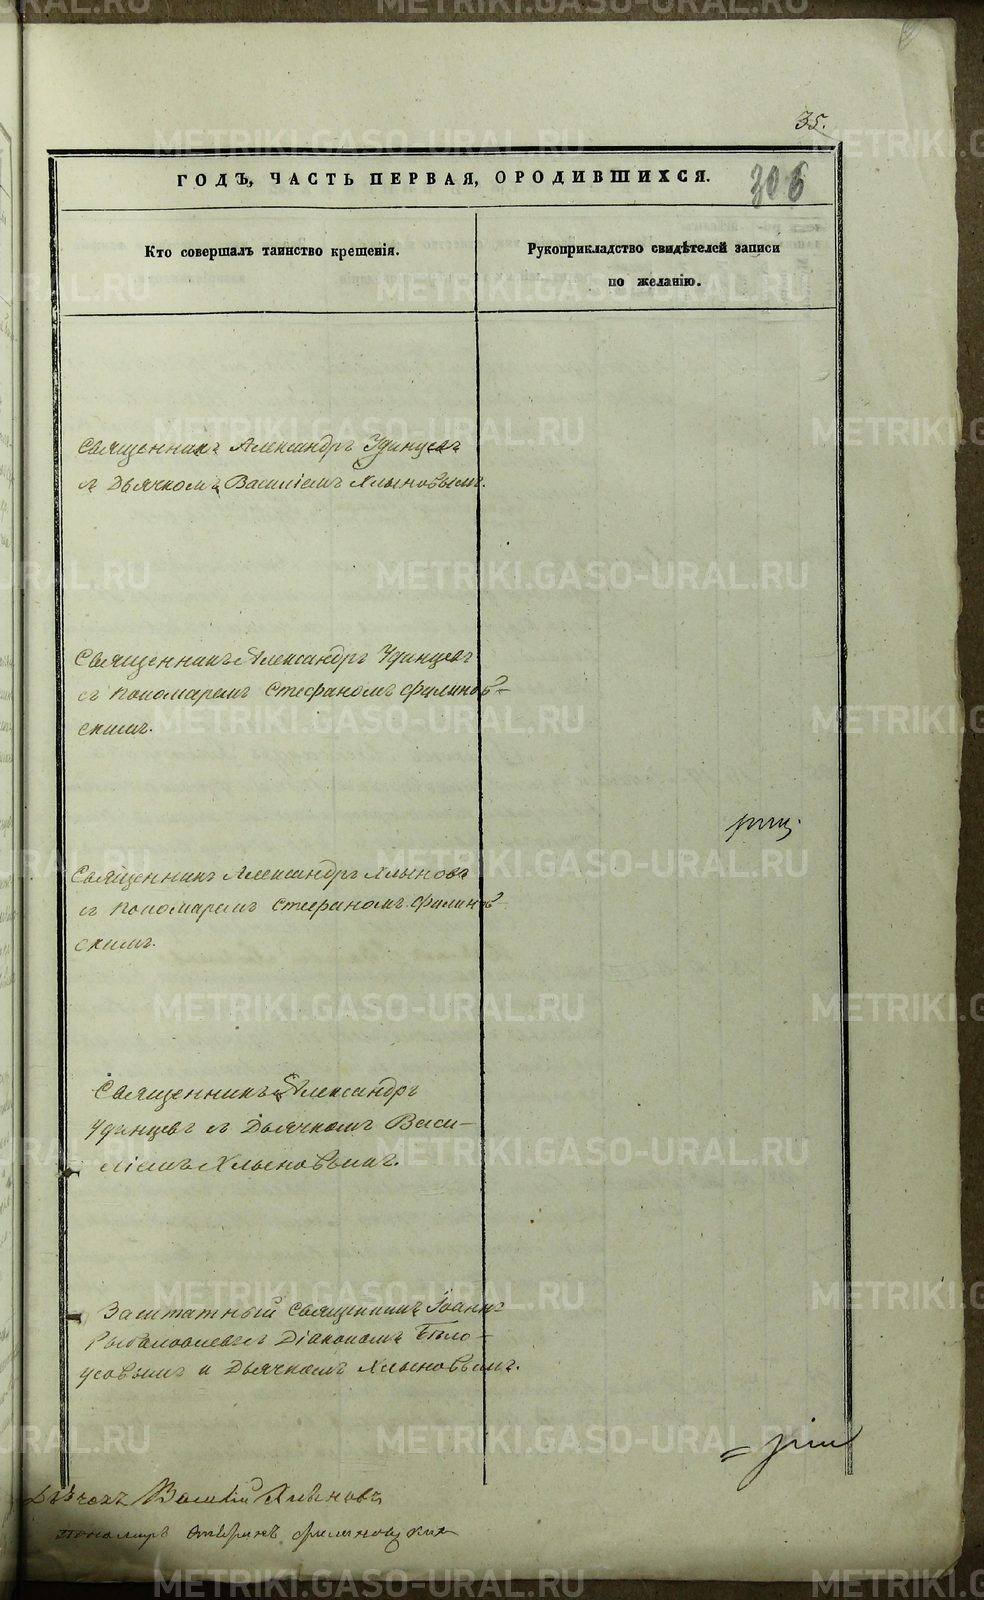 35.
ГОДЪ, ЧАСТЬ ПЕРВАЯ, ОРОДИВШИХСЯ.
306
Кто совершалъ таинство крещенія.
Рукоприкладство свидѣтелей записи
по желанію.
Священникъ Александръ Удинцевъ
съ Дьячкомъ Василіемъ Хлыновымъ.
Священникъ Александръ Удинцевъ
съ Пономаремъ Стефаномъ Филинов-
скимъ.
Священникъ Александръ Хлыновъ
съ Пономаремъ Стефаномъ Филинов-
скимъ.
Священникъ Александръ
Удинцевъ съ Дьячкомъ Васи-
ліемъ Хлыновымъ.
Заштатный священникъ Іоаннъ
съ Діакономъ Бѣло-
усовымъ и Дьячкомъ Хлыновымъ.
Дьячокъ Василій Хлыновъ
Пономарь Стефанъ Филиновскій
METRIKI.GASO-URAL.RU